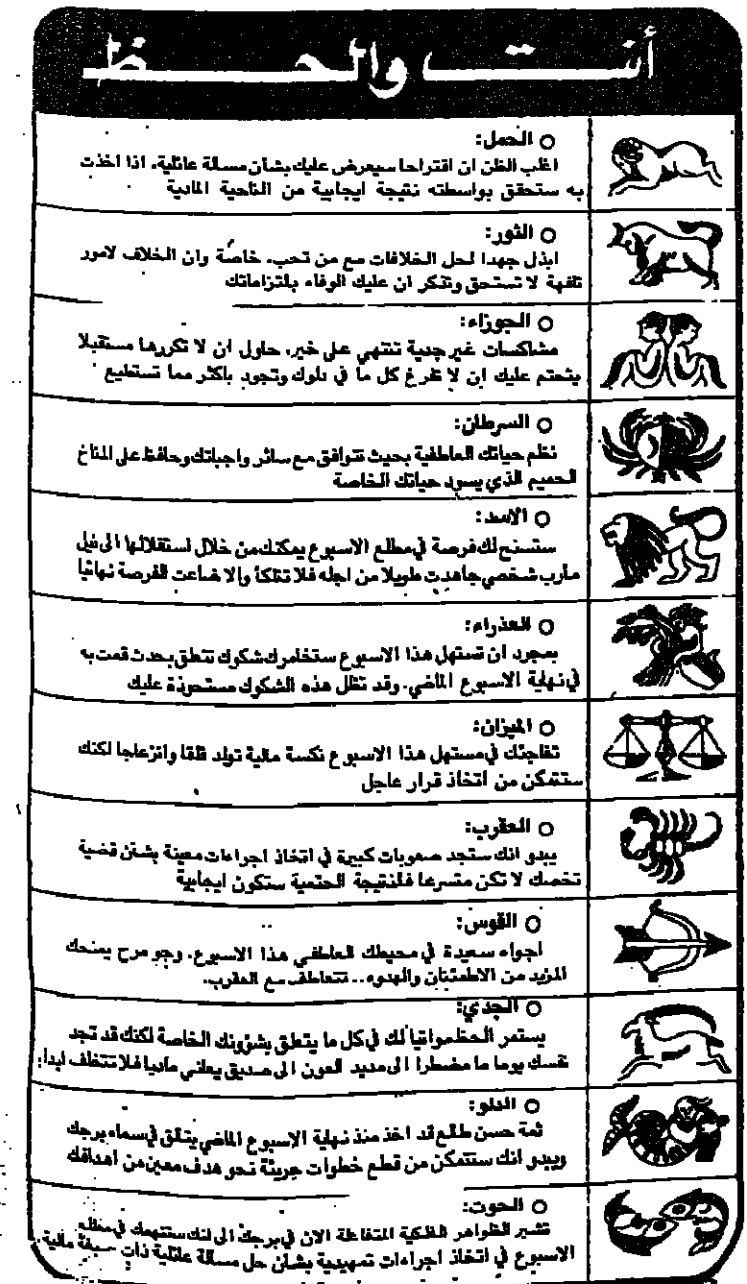 أنت والحظ
○ الحمل:
اغلب الظن ان اقتراحا سيعرض عليك بشأن مسالة عائلية، اذا اخذت
به ستحقق بواسطته نتيجة ايجابية من الناحية المادية
○ الثور:
ابذل جهدا لحل الخلافات مع من تحب، خاصة وان الخلاف لامور
تافهة لا تستحق وتذكر ان عليك الوفاء بالتزاماتك
○ الجوزاء:
مشاكسات غير جدية تنتهي على خير، حاول ان لا تكررها مستقبلا
يتحتم عليك ان لا تفرغ كل ما في دلوك وتجود باكثر مما تستطيع
○ السرطان:
نظم حياتك العاطفية بحيث تتوافق مع سائر واجباتك وحافظ على المناخ
الحميم الذي يسود حياتك الخاصة
○ الاسد:
ستسنح لك فرصة في مطلع الاسبوع يمكنك من خلال استغلالها الى نيل
مأرب شخصي جاهدت طويلا من اجله فلا تتلكأ والا ضاعت الفرصة نهائيا
○ العذراء:
بمجرد ان تستهل هذا الاسبوع ستخامرك شكوك تتعلق بحدث قمت به
في نهاية الاسبوع الماضي. وقد تظل هذه الشكوك مستحوذة عليك
○ الميزان:
تفاجئك في مستهل هذا الاسبوع نكسة مالية تولد قلقا وانزعاجا لكنك
ستتمكن من اتخاذ قرار عاجل
○ العقرب:
يبدو انك ستجد صعوبات كبيرة في اتخاذ اجراءات معينة بشأن قضية
تخصك لا تكن متسرعا فالنتيجة الحتمية ستكون ايجابية
○ القوس:
اجواء سعيدة في محيطك العاطفي هذا الاسبوع. وجو مرح يمنحك
المزيد من الاطمئنان والهدوء.. تتعاطف مع العقرب.
○ الجدي:
يستمر الحظ مواتيا لك في كل ما يتعلق بشؤونك الخاصة لكنك قد تجد
نفسك يوما ما مضطرا الى مديد العون الى صديق يعاني ماديا فلا تتخلف ابدا.
○ الدلو:
ثمة حسن طالع قد اخذ منذ نهاية الاسبوع الماضي يتألق في سماء برجك
ويبدو انك ستتمكن من قطع خطوات جريئة نحو هدف معين من اهدافك
○ الحوت:
تشير الظواهر الفلكية المتفاعلة الان في برجك الى انك ستنهمك في مطلع
الاسبوع في اتخاذ اجراءات تمهيدية بشان حل مسالة عائلية ذات صبغة مالية.